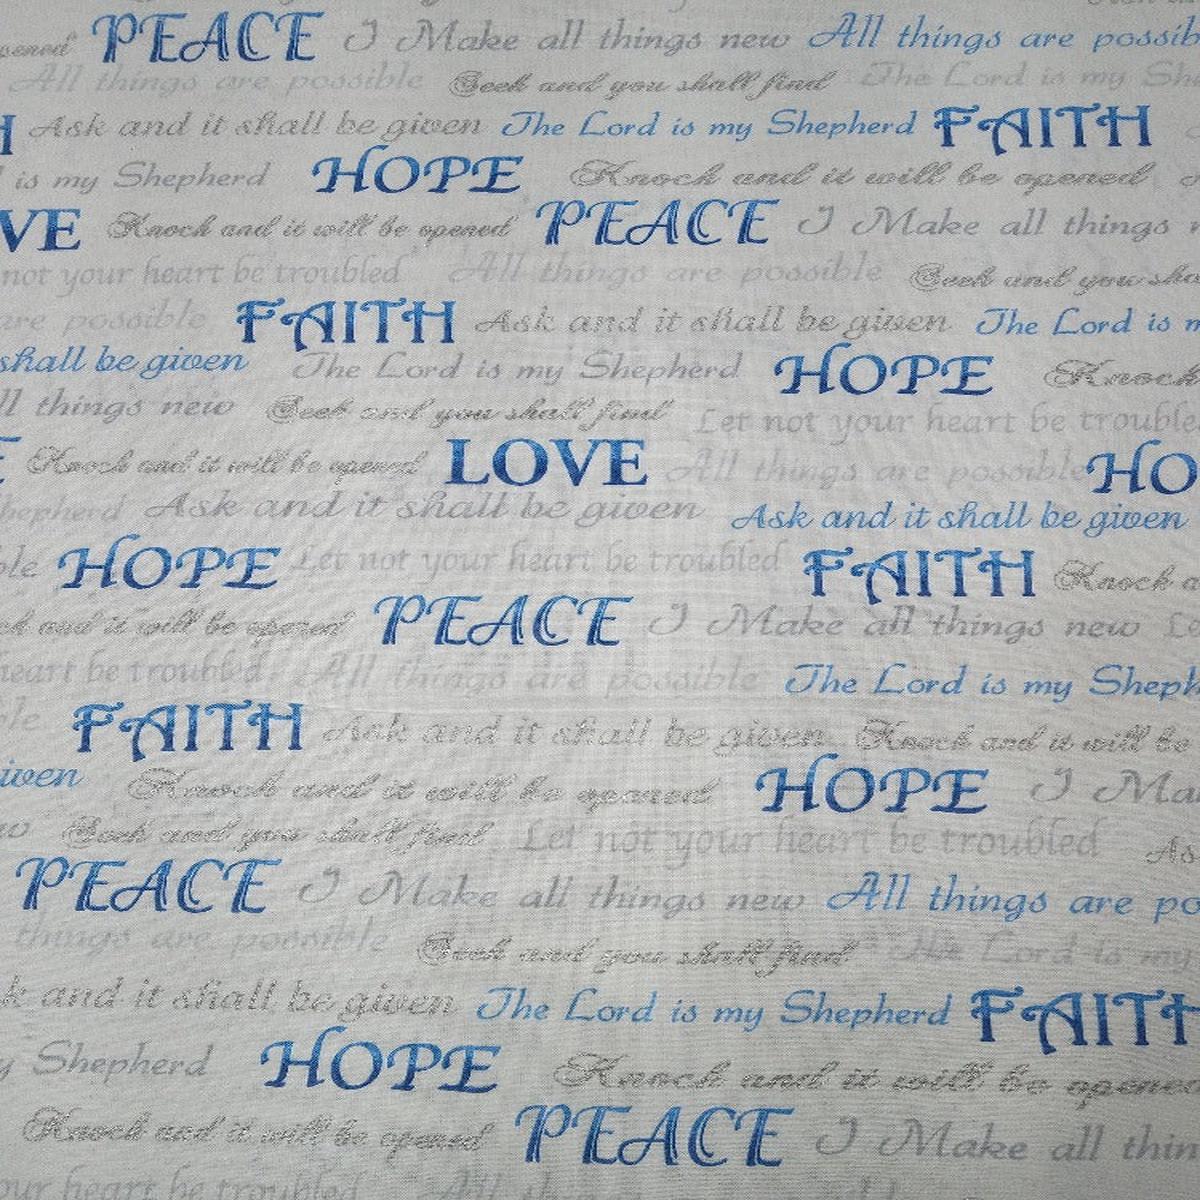 PEACE I Make all things new All things are possib
All things are possible Seek and you shall find The Lord is my Sh
H Ask and it shall be given The Lord is my Shepherd FAITH
is my Shepherd HOPE Knock and it will be opened
VE Knock and it will be opened PEACE I Make all things
not your heart be troubled All things are possible Seek and you sha
are possible FAITH Ask and it shall be given The Lord is m
shall be given The Lord is my Shepherd HOPE Knock
ll things new Seek and you shall find Let not your heart be trouble
E Knock and it will be opened LOVE All things are possible HO
hepherd Ask and it shall be given Ask and it shall be given
ble HOPE Let not your heart be troubled FAITH Knock a
ck and it will be opened PEACE I Make all things new
heart be troubled All things are possible The Lord is my Sheph
ble FAITH Ask and it shall be given Knock and it will be
iven Knock and it will be opened HOPE I Ma
w Seek and you shall find Let not your heart be troubled As
PEACE I Make all things new All things are po
things are possible Seek and you shall find The Lord is my
k and it shall be given The Lord is my Shepherd FAITH
y Shepherd HOPE Knock and it will be opened
Knock and it will be opened PEACE I Make all thin
our heart be troubled All things are possible